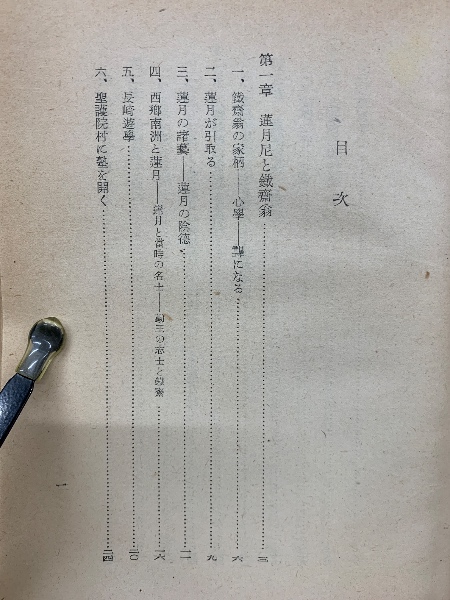 目次
第一章 蓮月尼と鐵齋翁……三
一、鐵齋翁の家柄——心學——聾になる……六
二、蓮月が引取る……九
三、蓮月の諸藝——蓮月の陰德……一一
四、西鄕南洲と蓮月——蓮月と當時の名士——勤王の志士と鐵齋……一六
五、長崎遊學……二〇
六、聖護院村に塾を開く……二四
一